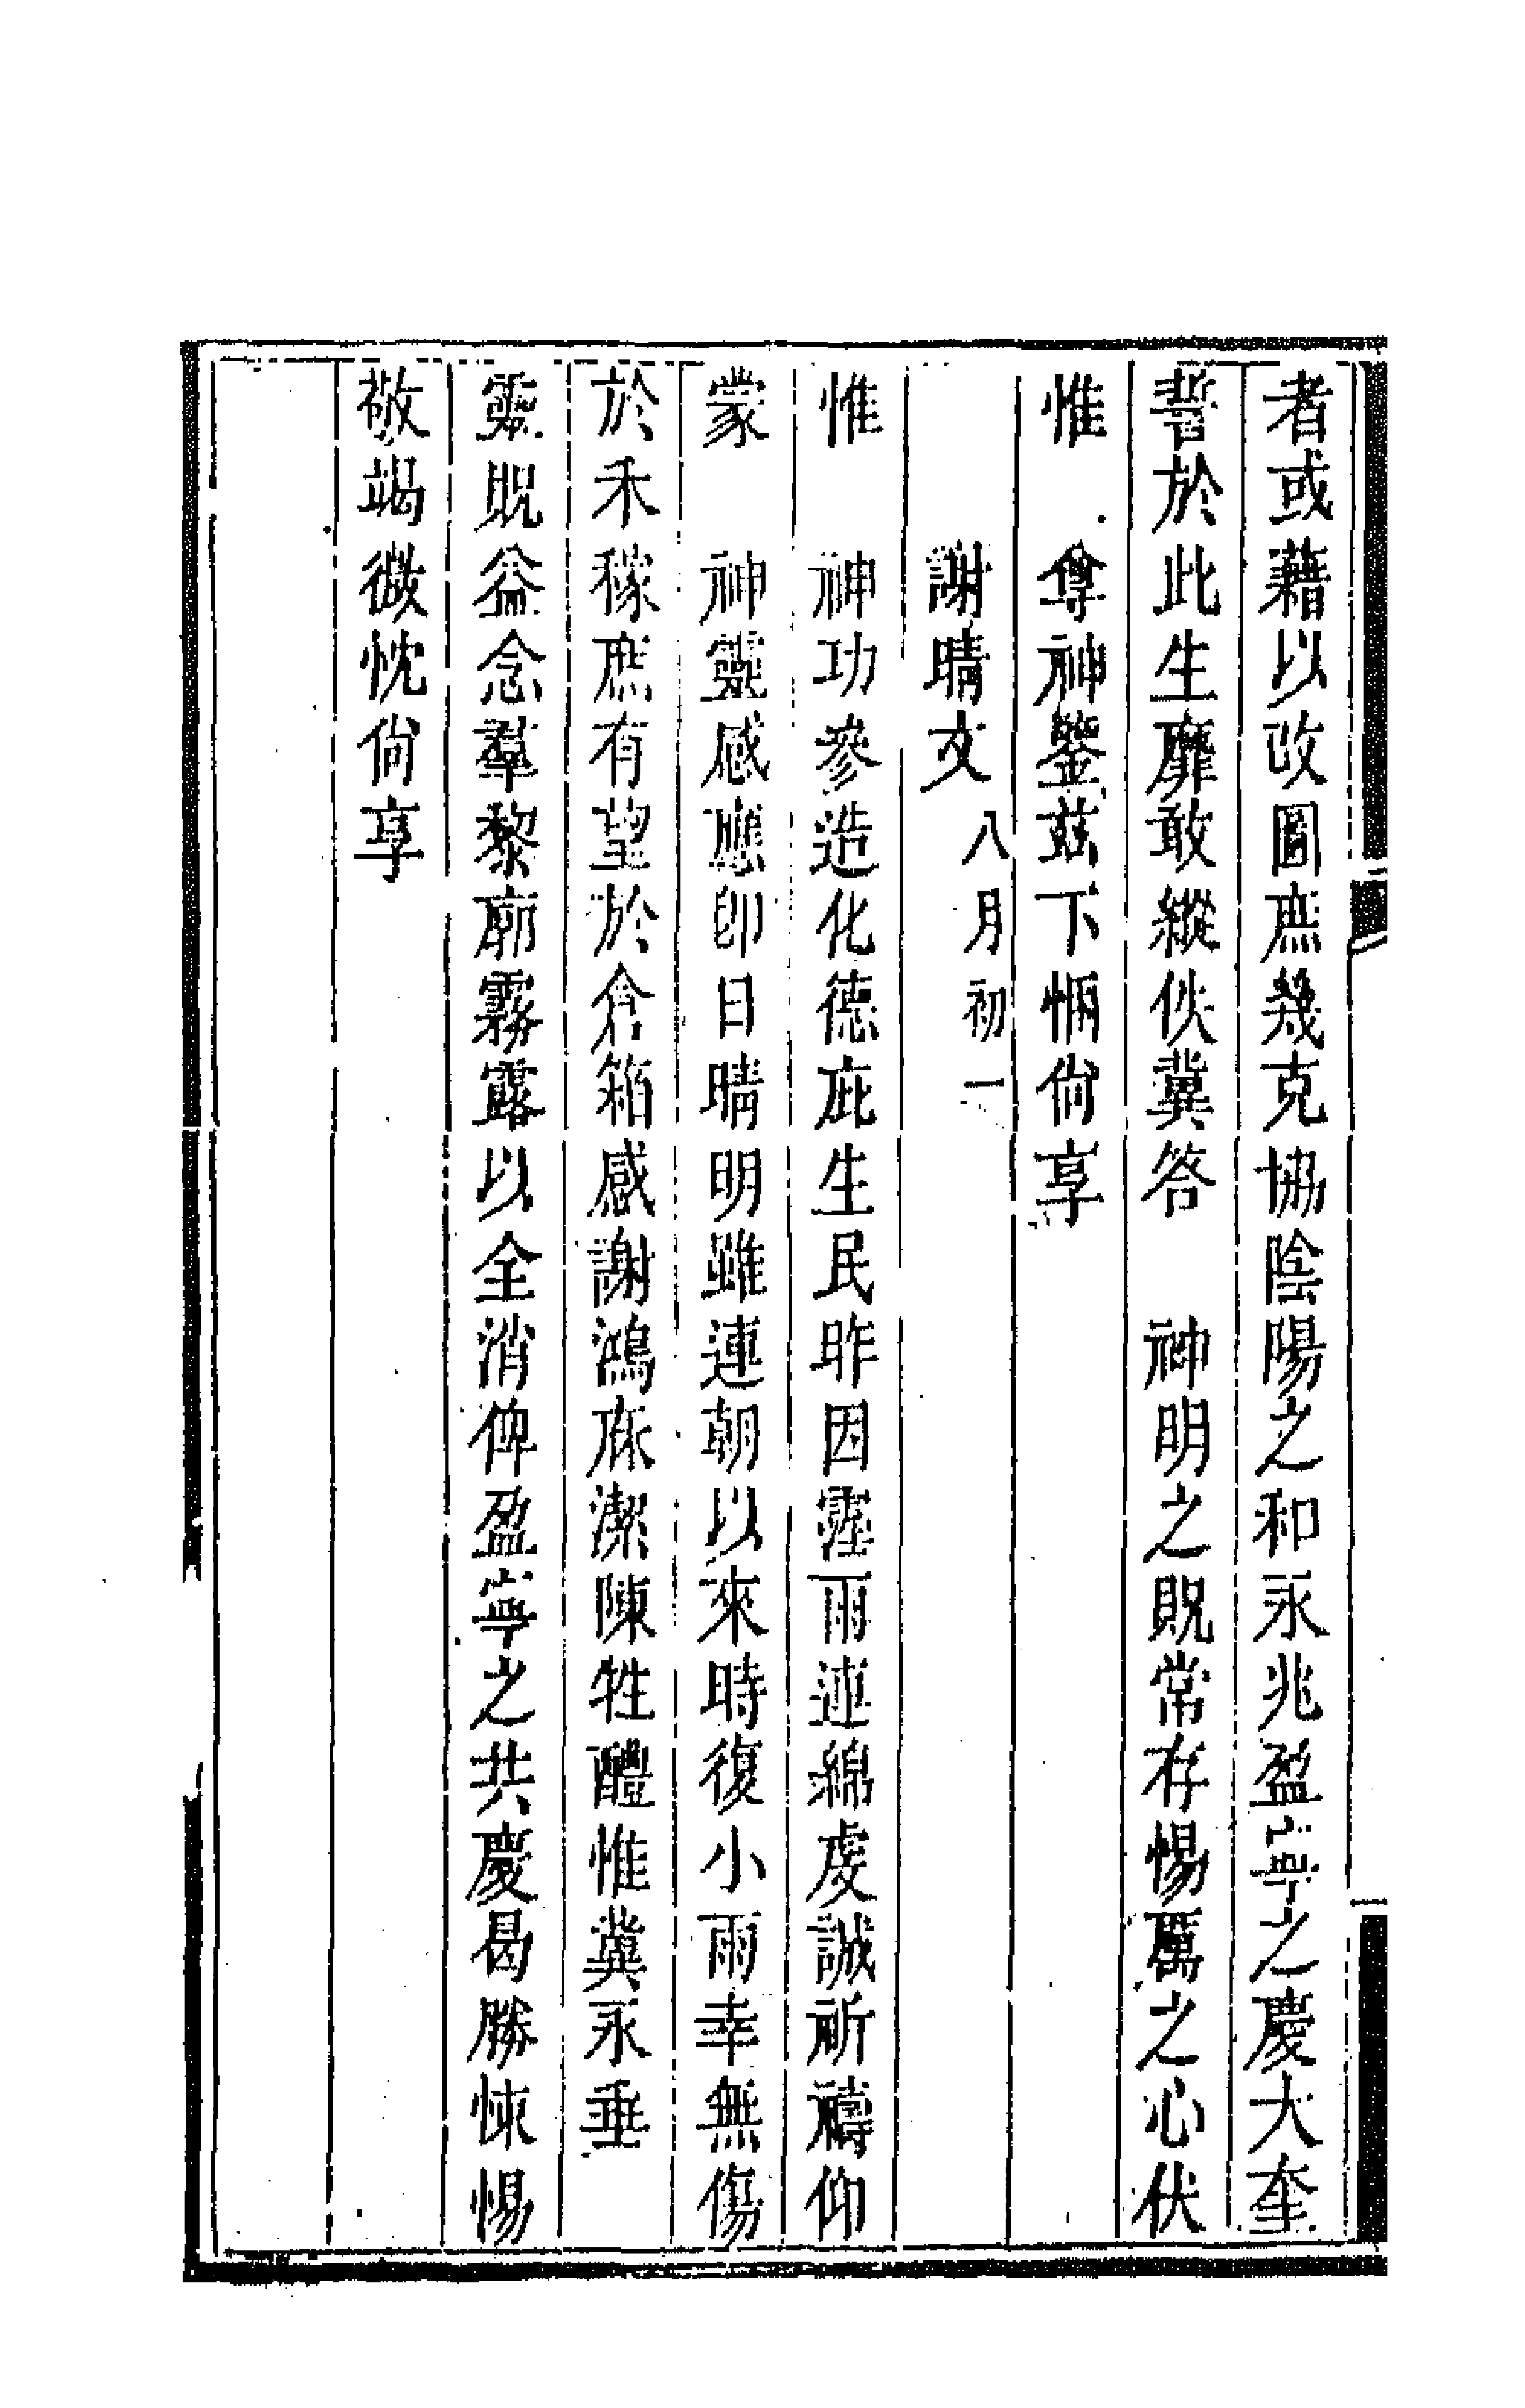 者或藉以改圖庶幾克協陰陽之和永兆盈寧之慶大奎
誓於此生靡敢縱佚冀答　神明之貺常存惕厲之心伏
惟　尊神鑒玆下悃尙享
謝晴文八月初一
惟　神功參造化德庇生民昨因霪雨連綿虔誠祈禱仰
蒙　神靈感應卽日晴明雖連朝以來時復小雨幸無傷
於禾稼庶有望於倉箱感謝鴻庥潔陳牲醴惟冀永垂
靈貺益念羣黎廓霧露以全消俾盈寧之共慶曷勝悚惕
敬竭微忱尙享